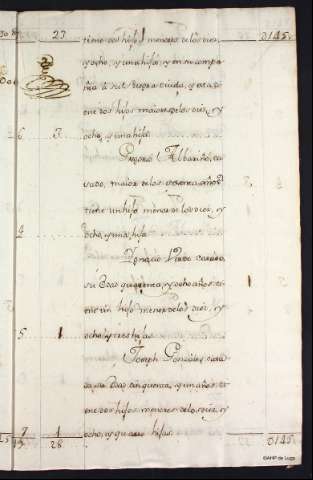 23 0145
tiene dos hijos menores de los diez,
y ocho, y una hija, y en su compa
ñia à su suegra viuda, y esta ti
ene dos hijos maiores de los diez, y
6 3 ocho, y una hija.
Gregorio Albariño, ca
sado, maior de los sesenta años
tiene un hijo menor de los diez, y
4 ocho, y una hija
Ignacio casado,
su edad quarenta, y ocho años ti
ene un hijo menor de los diez, y
5 1 ocho, y tres hijas
Joseph Gonzalez casa
do, su edad cinquenta, y un años, ti
ene dos hijos menores de los diez, y
7 1 ocho, y quatro hijas.
28 0145
©AHP de Lugo